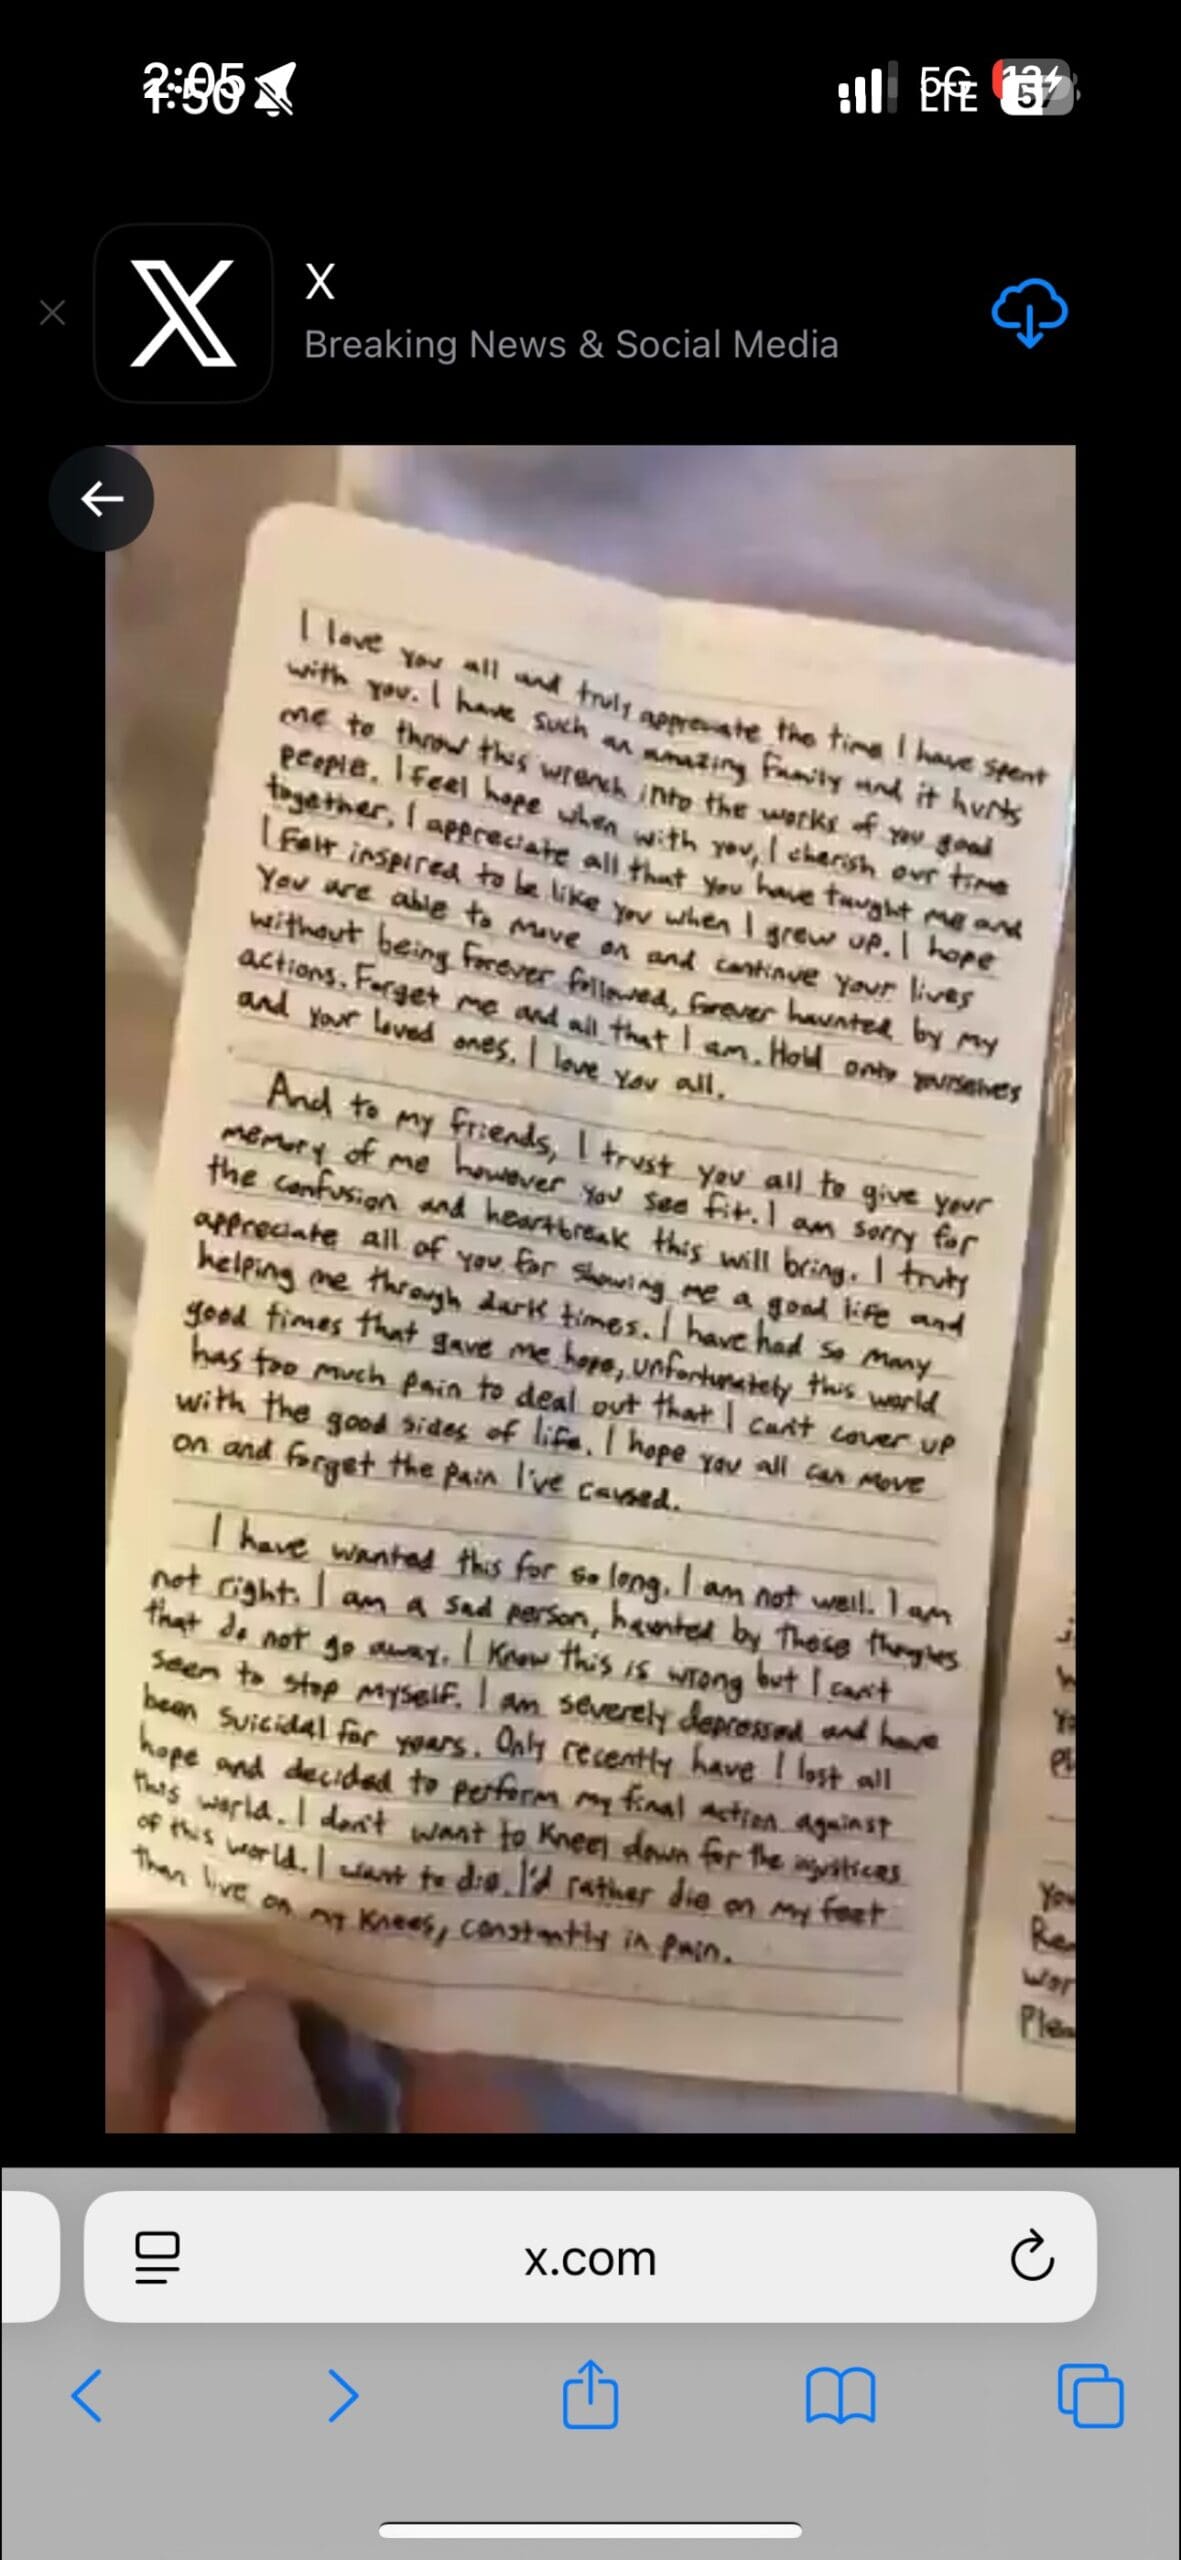 2:05
1:50
5G
LTE
X
Breaking News & Social Media
I love you all and truly appreciate the time I have spent
with you. I have such an amazing family and it hurts
me to throw this wrench into the works of you good
people. I feel hope when with you, I cherish our time
together. I appreciate all that you have taught me and
I felt inspired to be like you when I grew up. I hope
you are able to move on and continue your lives
without being forever followed, forever haunted by my
actions. Forget me and all that I am. Hold onto yourselves
and your loved ones. I love you all.
And to my friends, I trust you all to give your
memory of me however you see fit. I am sorry for
the confusion and heartbreak this will bring. I truly
appreciate all of you for showing me a good life and
helping me through dark times. I have had so many
good times that gave me hope, unfortunately this world
has too much pain to deal out that I can't cover up
with the good sides of life. I hope you all can move
on and forget the pain I've caused.
I have wanted this for so long. I am not well. I am
not right. I am a sad person, haunted by these thoughts
that do not go away. I know this is wrong but I can't
seem to stop myself. I am severely depressed and have
been suicidal for years. Only recently have I lost all
hope and decided to perform my final action against
this world. I don't want to kneel down for the injustices
of this world. I want to die. I'd rather die on my feet
than live on my knees, constantly in pain.
You
x.com